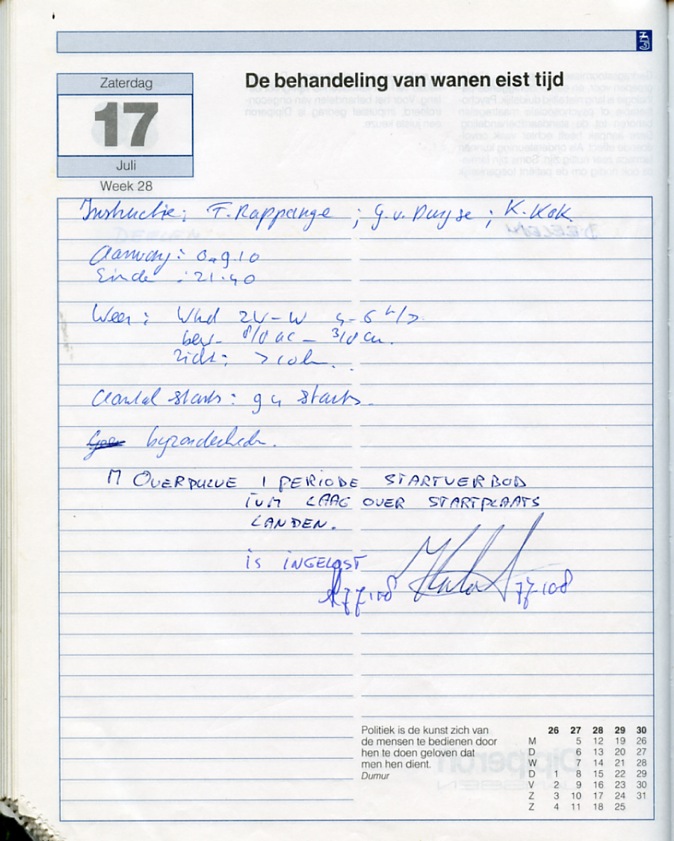 Zaterdag
17
Juli
Week 28
De behandeling van wanen eist tijd
Instructie; F. Rappange ; G.v. Duyse ; K. Kok
Aanvang: 09.10
Einde : 21.40
Weer: Wind ZW-W 4-6
bew. 8/8 ac - 3/8 cu.
zicht: > 10 km.
Aantal starts: 94 starts.
Geen bijzonderheden.
M OVERDULVE 1 PERIODE STARTVERBOD
IVM LAAG OVER STARTPLAATS
LANDEN.
IS INGELAST
77-108 77-108
Politiek is de kunst zich van
de mensen te bedienen door
hen te doen geloven dat
men hen dient.
Dumur
26 27 28 29 30
M 5 12 19 26
D 6 13 20 27
W 7 14 21 28
D 1 8 15 22 29
V 2 9 16 23 30
Z 3 10 17 24 31
Z 4 11 18 25